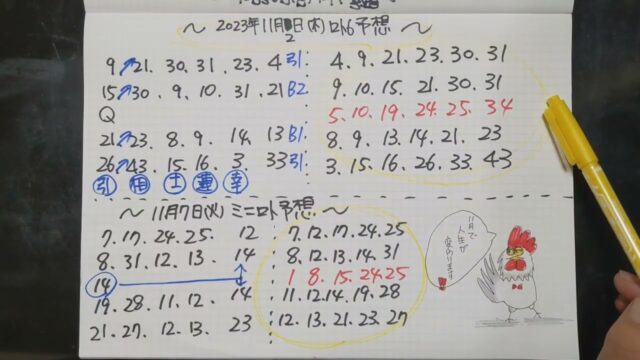 ～ 2023年11月2日(木)ロト6予想 ～
9 21. 30. 31. 23. 4 引
15 30. 9. 10. 31. 21 B2
Q
21 23. 8. 9. 14. 13 B1
26 43. 15. 16. 3 33 引
引 相 土 蓮 幸
4. 9. 21. 23. 30. 31
9. 10. 15. 21. 30. 31
5. 10. 19. 24. 25. 34
8. 9. 13. 14. 21. 23
3. 15. 16. 26. 33. 43
～ 11月7日(火) ミニロト予想 ～
7. 17. 24. 25. 12
8. 31. 12. 13. 14
14
19. 28. 11. 12. 14
21. 27. 12. 13. 23
7. 12. 17. 24. 25
8. 12. 13. 14. 31
1 8. 15. 24. 25
11. 12. 14. 19. 28
12. 13. 21. 23. 27
11月で
人生が
変わります